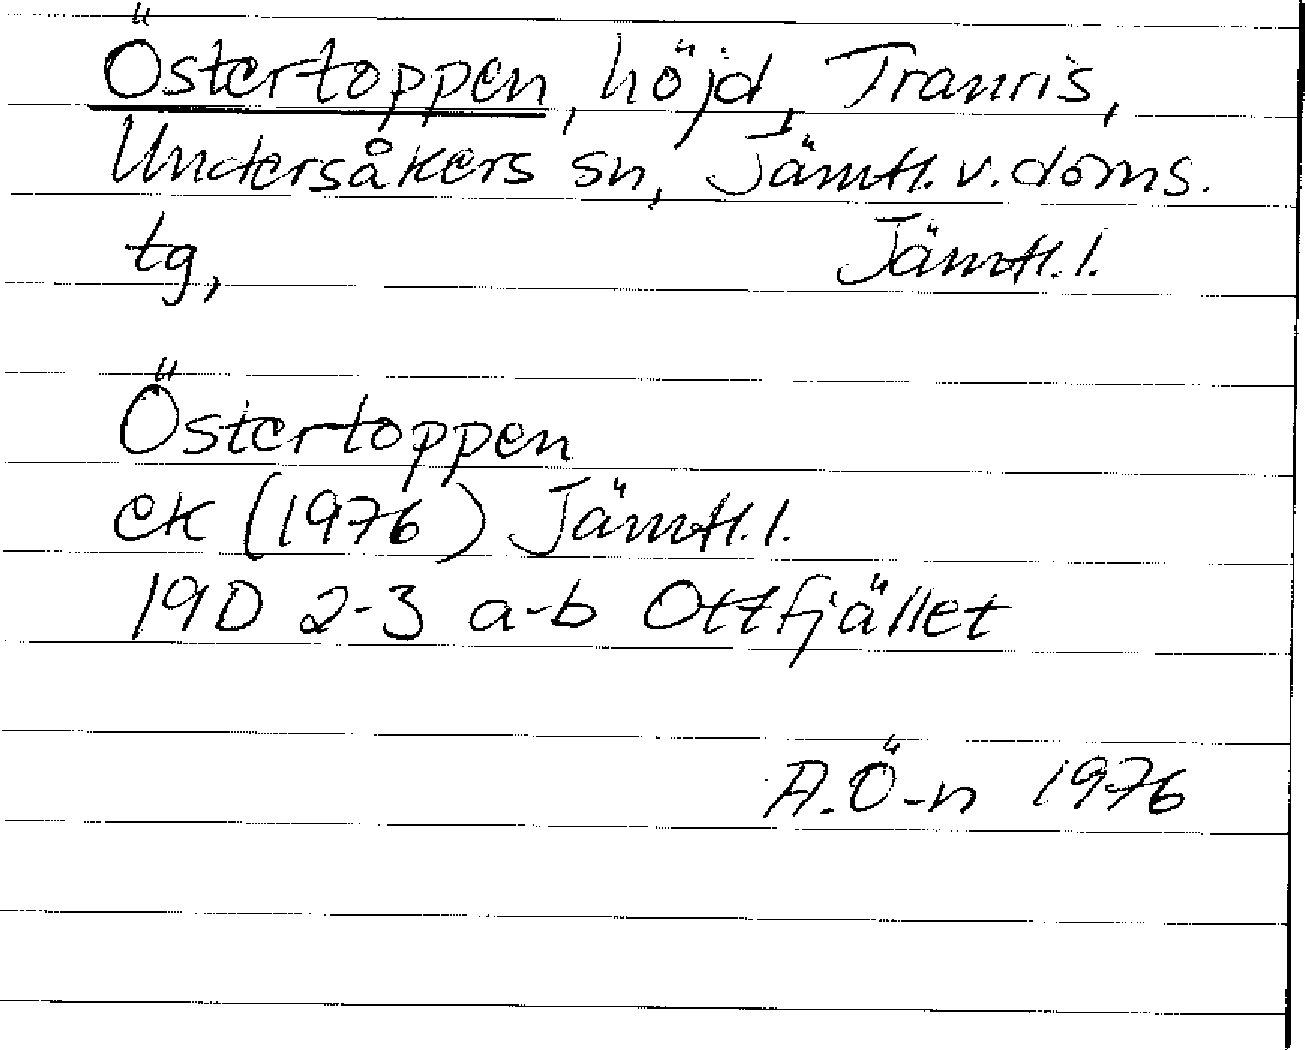 Östertoppen, höjd, Tranris,
Undersåkers sn, Jämtl. v. doms.
tg, Jämtl. l.
Östertoppen
ek (1976) Jämtl. l.
19D 2-3 a-b Ottfjället
A. Ö-n 1976